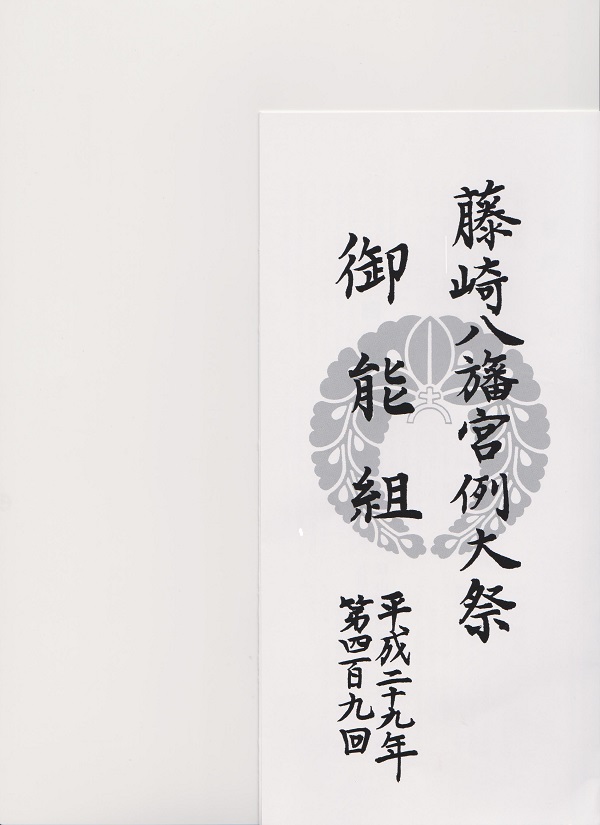 藤崎八旛宮例大祭
御能組
平成二十九年
第四百九回